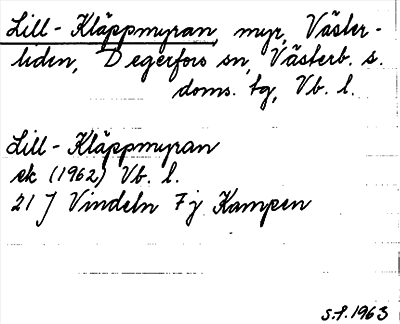 Lill-Kläppmyran, myr, Väster-
liden, Degerfors sn, Västerb. s.
doms. tg, Vb. l.
Lill-Kläppmyran
ek (1962) Vb. l.
21 J Vindeln 7 j Kampen
s.f. 1963